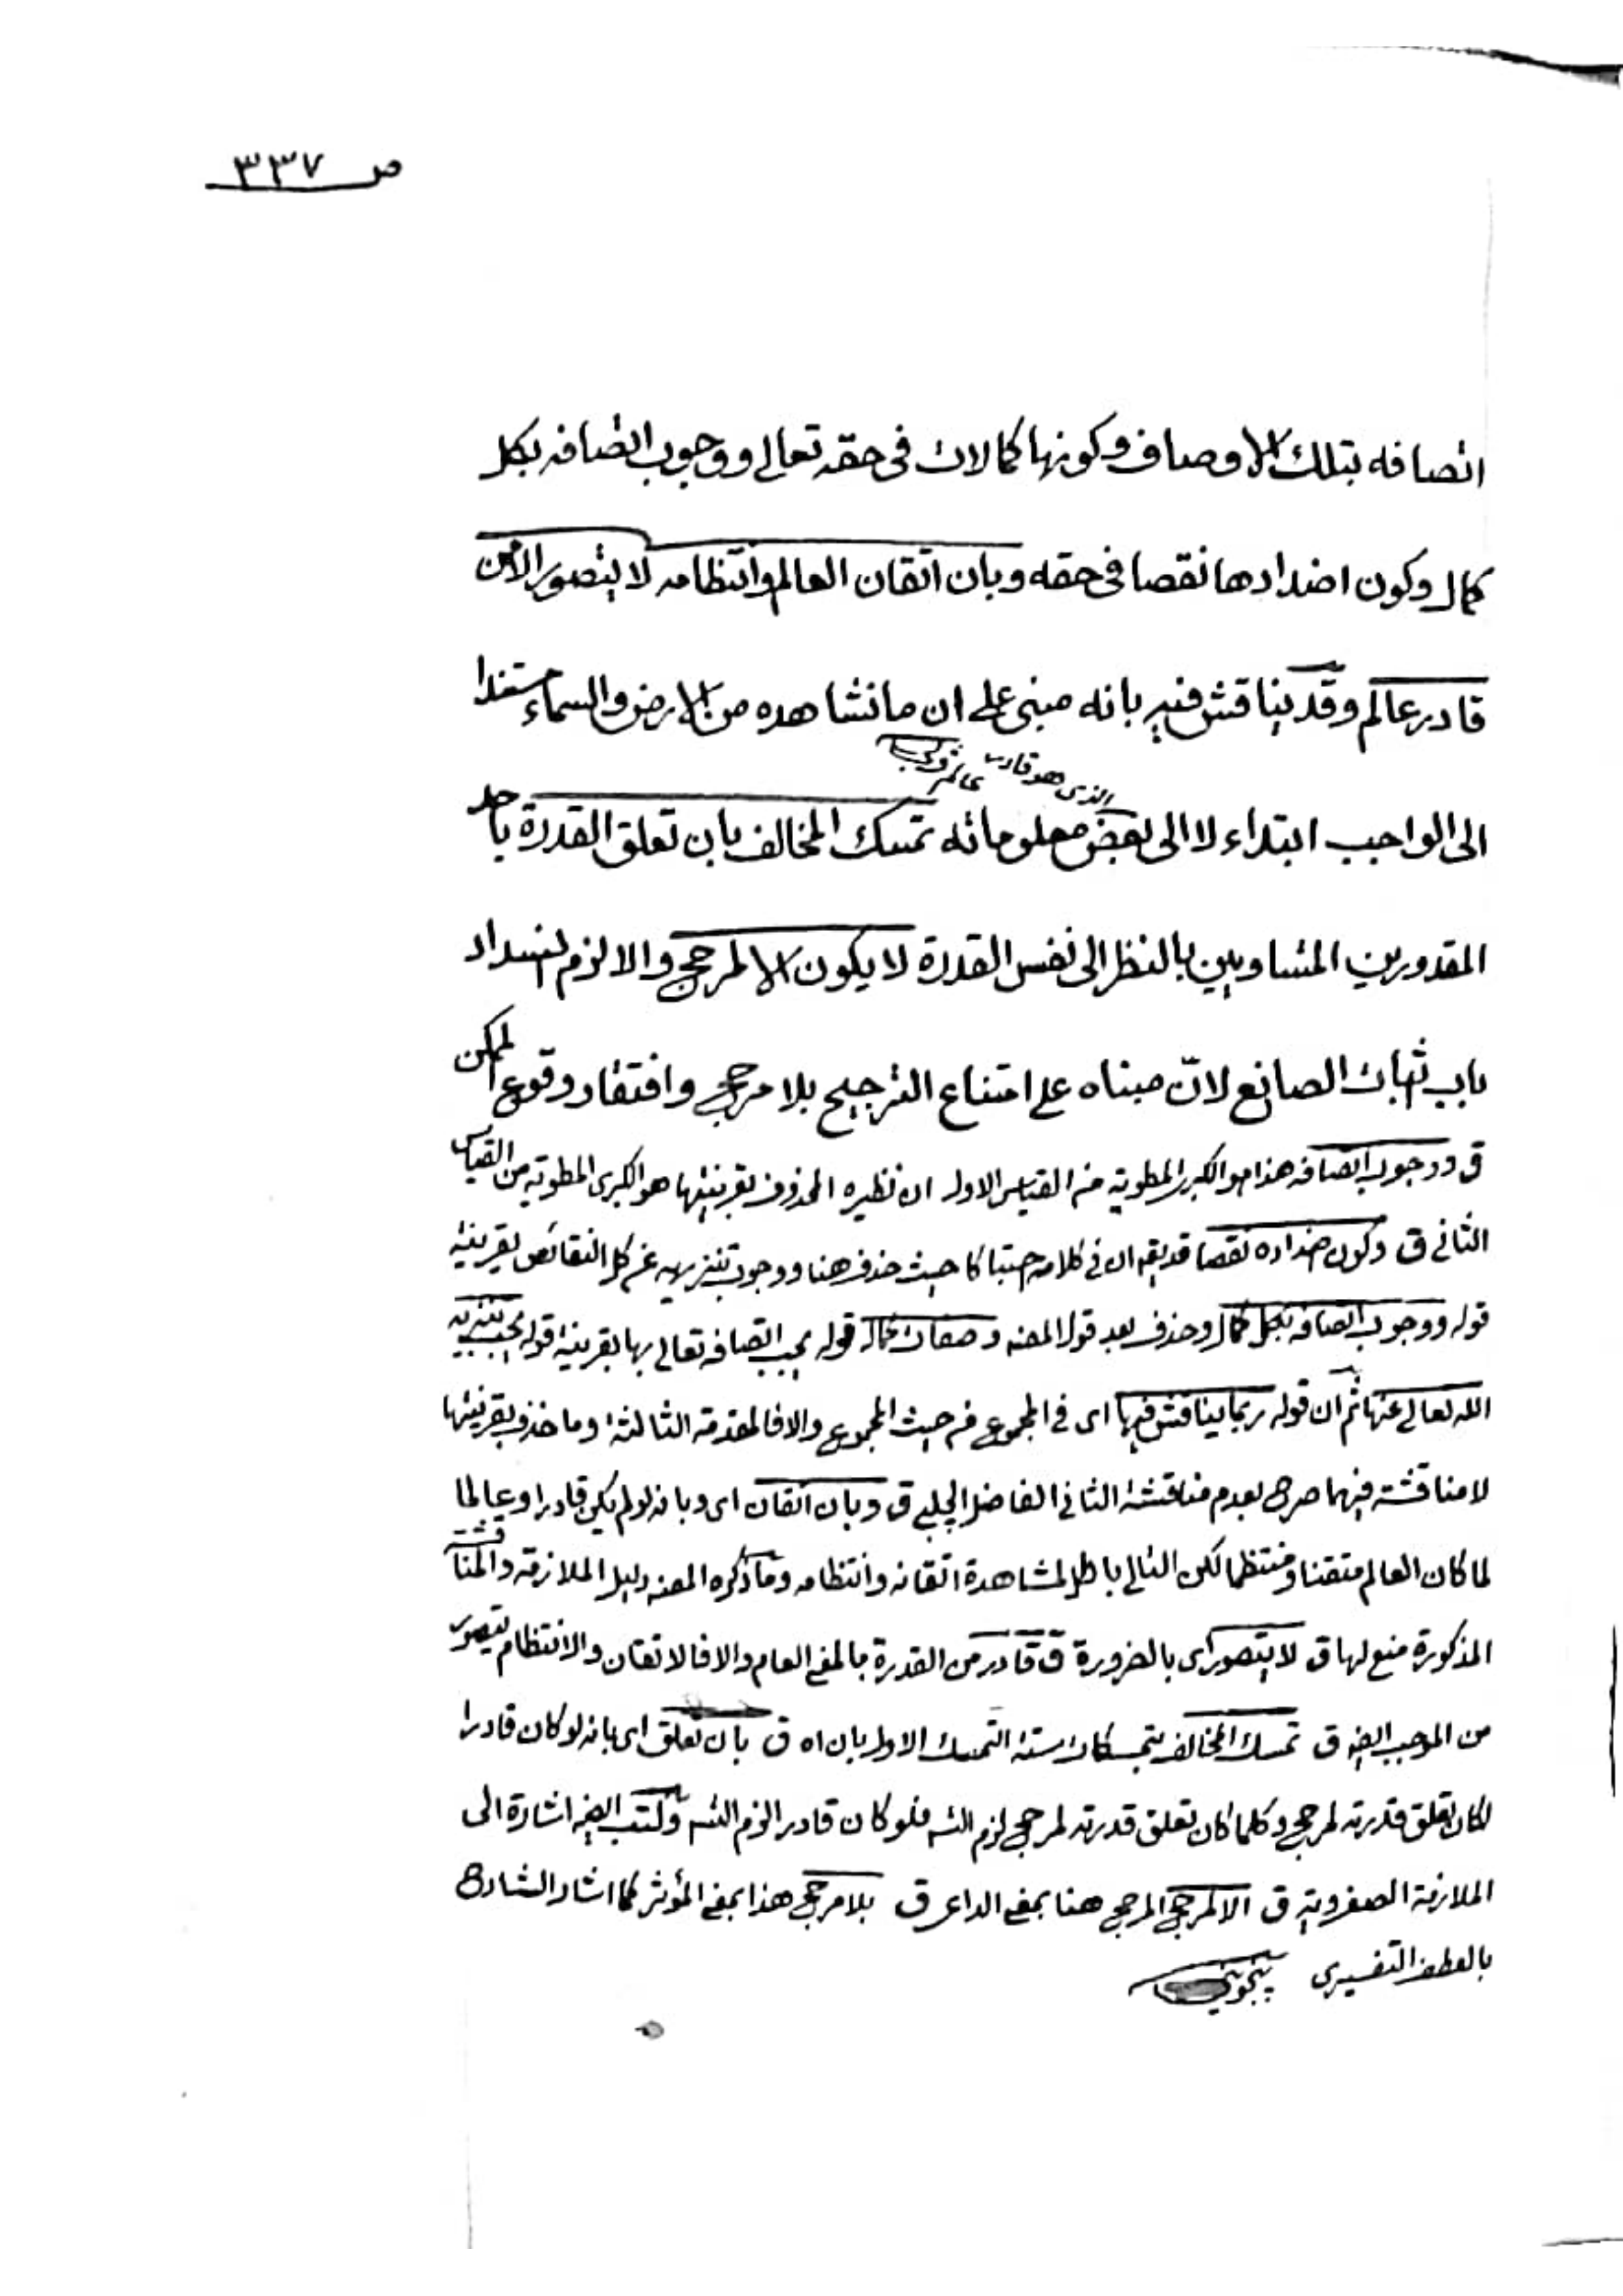 ص ٣٣٧
اتصافه بتلك الاوصاف وكونها كمالات فى حقه تعالى ووجوب اتصافه بكل
كمال وكون اضدادها نقصا فى حقه وبان اتقان العالم وانتظامه لا يتصور الا من
قادر عالم وقد يناقش فيه بانه مبنى على ان ما نشاهده من الارض والسماء مستندا
الذى هو قادر عالم
الى الواجب ابتداء لا الى بعض معلولاته تمسك المخالف بان تعلق القدرة باحد
المقدورين المتساويين بالنظر الى نفس القدرة لا يكون الا لمرجح والا لزم انسداد
باب اثبات الصانع لانّ مبناه على امتناع الترجيح بلا مرجح وافتقار وقوع الممكن
ق ووجوب اتصافه هذا هو الكبرى المطوية من القياس الاول ان نظيره المحذوف بقرينتها هو الكبرى المطوية من القياس
الثانى ق وكون اضداده نقصا قد يقه ان فى كلامه احتباكا حيث حذف هنا ووجوب تنزيهه عن كل النقائص بقرينة
قوله ووجوب اتصافه بكل كمال وحذف بعد قول المصنه وصفات كمال قوله يجب اتصافه تعالى بها بقرينة قوله يجب تنزيه
الله تعالى عنها ثم ان قوله ربما يناقش فيها اى فى المجموع من حيث المجموع والا فالمقدمة الثالثة وما حذف بقرينتها
لا مناقشة فيهما صرح بعدم مناقشة الثانى الفاضل الچلبى ق وبان اتقان اى وبانه لو لم يكن قادرا وعالما
لما كان العالم متقنا ومنتظما لكن التالى باطل لمشاهدة اتقانه وانتظامه وما ذكره المصنه دليل الملازمة والمناقشة
المذكورة منع لها ق لا يتصور اى بالضرورة ق قادر من القدرة بالمعنى العام والا فالاتقان والانتظام يتصور
من الموجب ايضه ق تمسك المخالف بتمسكات ستة التمسك الاول بان اه ق بان تعلق اى بانه لو كان قادرا
لكان تعلق قدرته لمرجح وكلما كان تعلق قدرته لمرجح لزم التسه فلو كان قادرا لزم التسه وكتب ايضه اشارة الى
الملازمة الصغروية ق الا لمرجح المرجح هنا بمعنى الداعى ق بلا مرجح هذا بمعنى المؤثر كما اشار الشارح
بالعطف التفسيرى پنجوينى